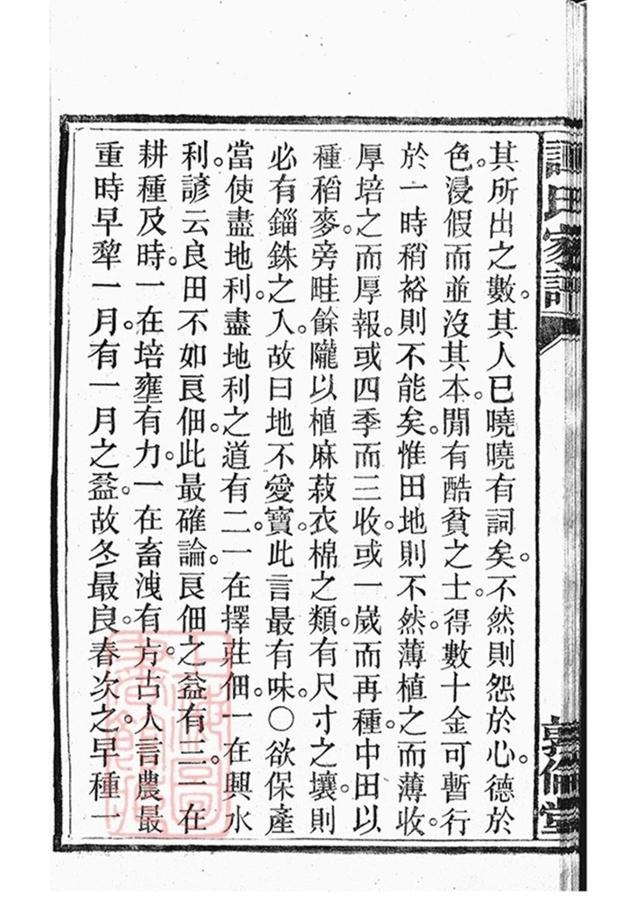 其所出之數。其人已曉曉有詞矣。不然則怨於心。德於
色。浸假而並沒其本。閒有酷貧之士。得數十金可暫行
於一時。稍裕則不能矣。惟田地則不然。薄植之而薄收。
厚培之而厚報。或四季而三收。或一嵗而再種。中田以
種稻麥。旁畦餘隴以植麻菽衣棉之類。有尺寸之壤。則
必有錙銖之入。故曰地不愛寶。此言最有味。〇欲保產
當使盡地利。盡地利之道有二。一在擇莊佃。一在興水
利。諺云良田不如良佃。此最確論。良佃之益有三。一在
耕種及時。一在培壅有力。一在畜洩有方。古人言農最
重時。早犂一月。有一月之益。故冬最良。春次之。早種一
家譜
敦倫堂